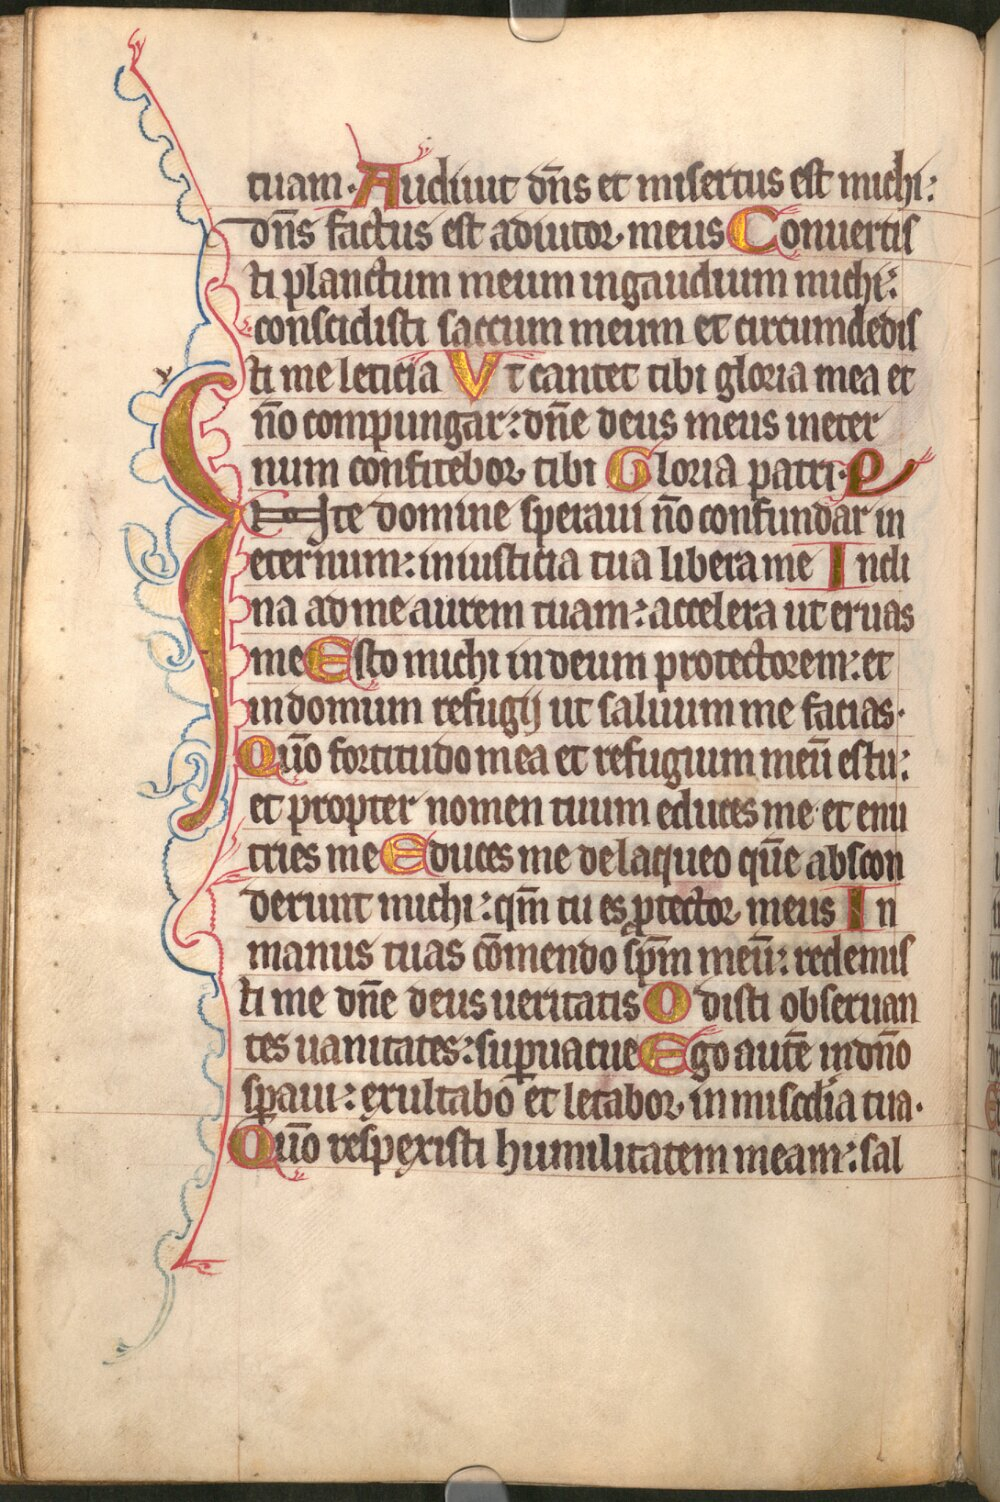 tuam. Audiuit dn̄s et misertus est michi:
dn̄s factus est adiutor meus Conuertis
ti planctum meum in gaudium michi:
conscidisti saccum meum et circumdedis
ti me leticia Vt cantet tibi gloria mea et
nō compungar: dn̄e deus meus in eter
num confitebor tibi Gloria patri. P
IN te domine speraui nō confundar in
eternum: in iusticia tua libera me Incli
na ad me aurem tuam: accelera ut eruas
me Esto michi in deum protectorem: et
in domum refugij ut saluum me facias.
Quō fortitudo mea et refugium meū es tu:
et propter nomen tuum educes me et enu
tries me Educes me de laqueo quē abscon
derunt michi: qm̄ tu es ꝓtector meus In
manus tuas cōmendo spm̄ meū: redemis
ti me dn̄e deus ueritatis Odisti obseruan
tes uanitates: suꝑuacue Ego autē in dn̄o
sꝑaui: exultabo et letabor in misc̄dia tua.
Quō respexisti humilitatem meam: sal